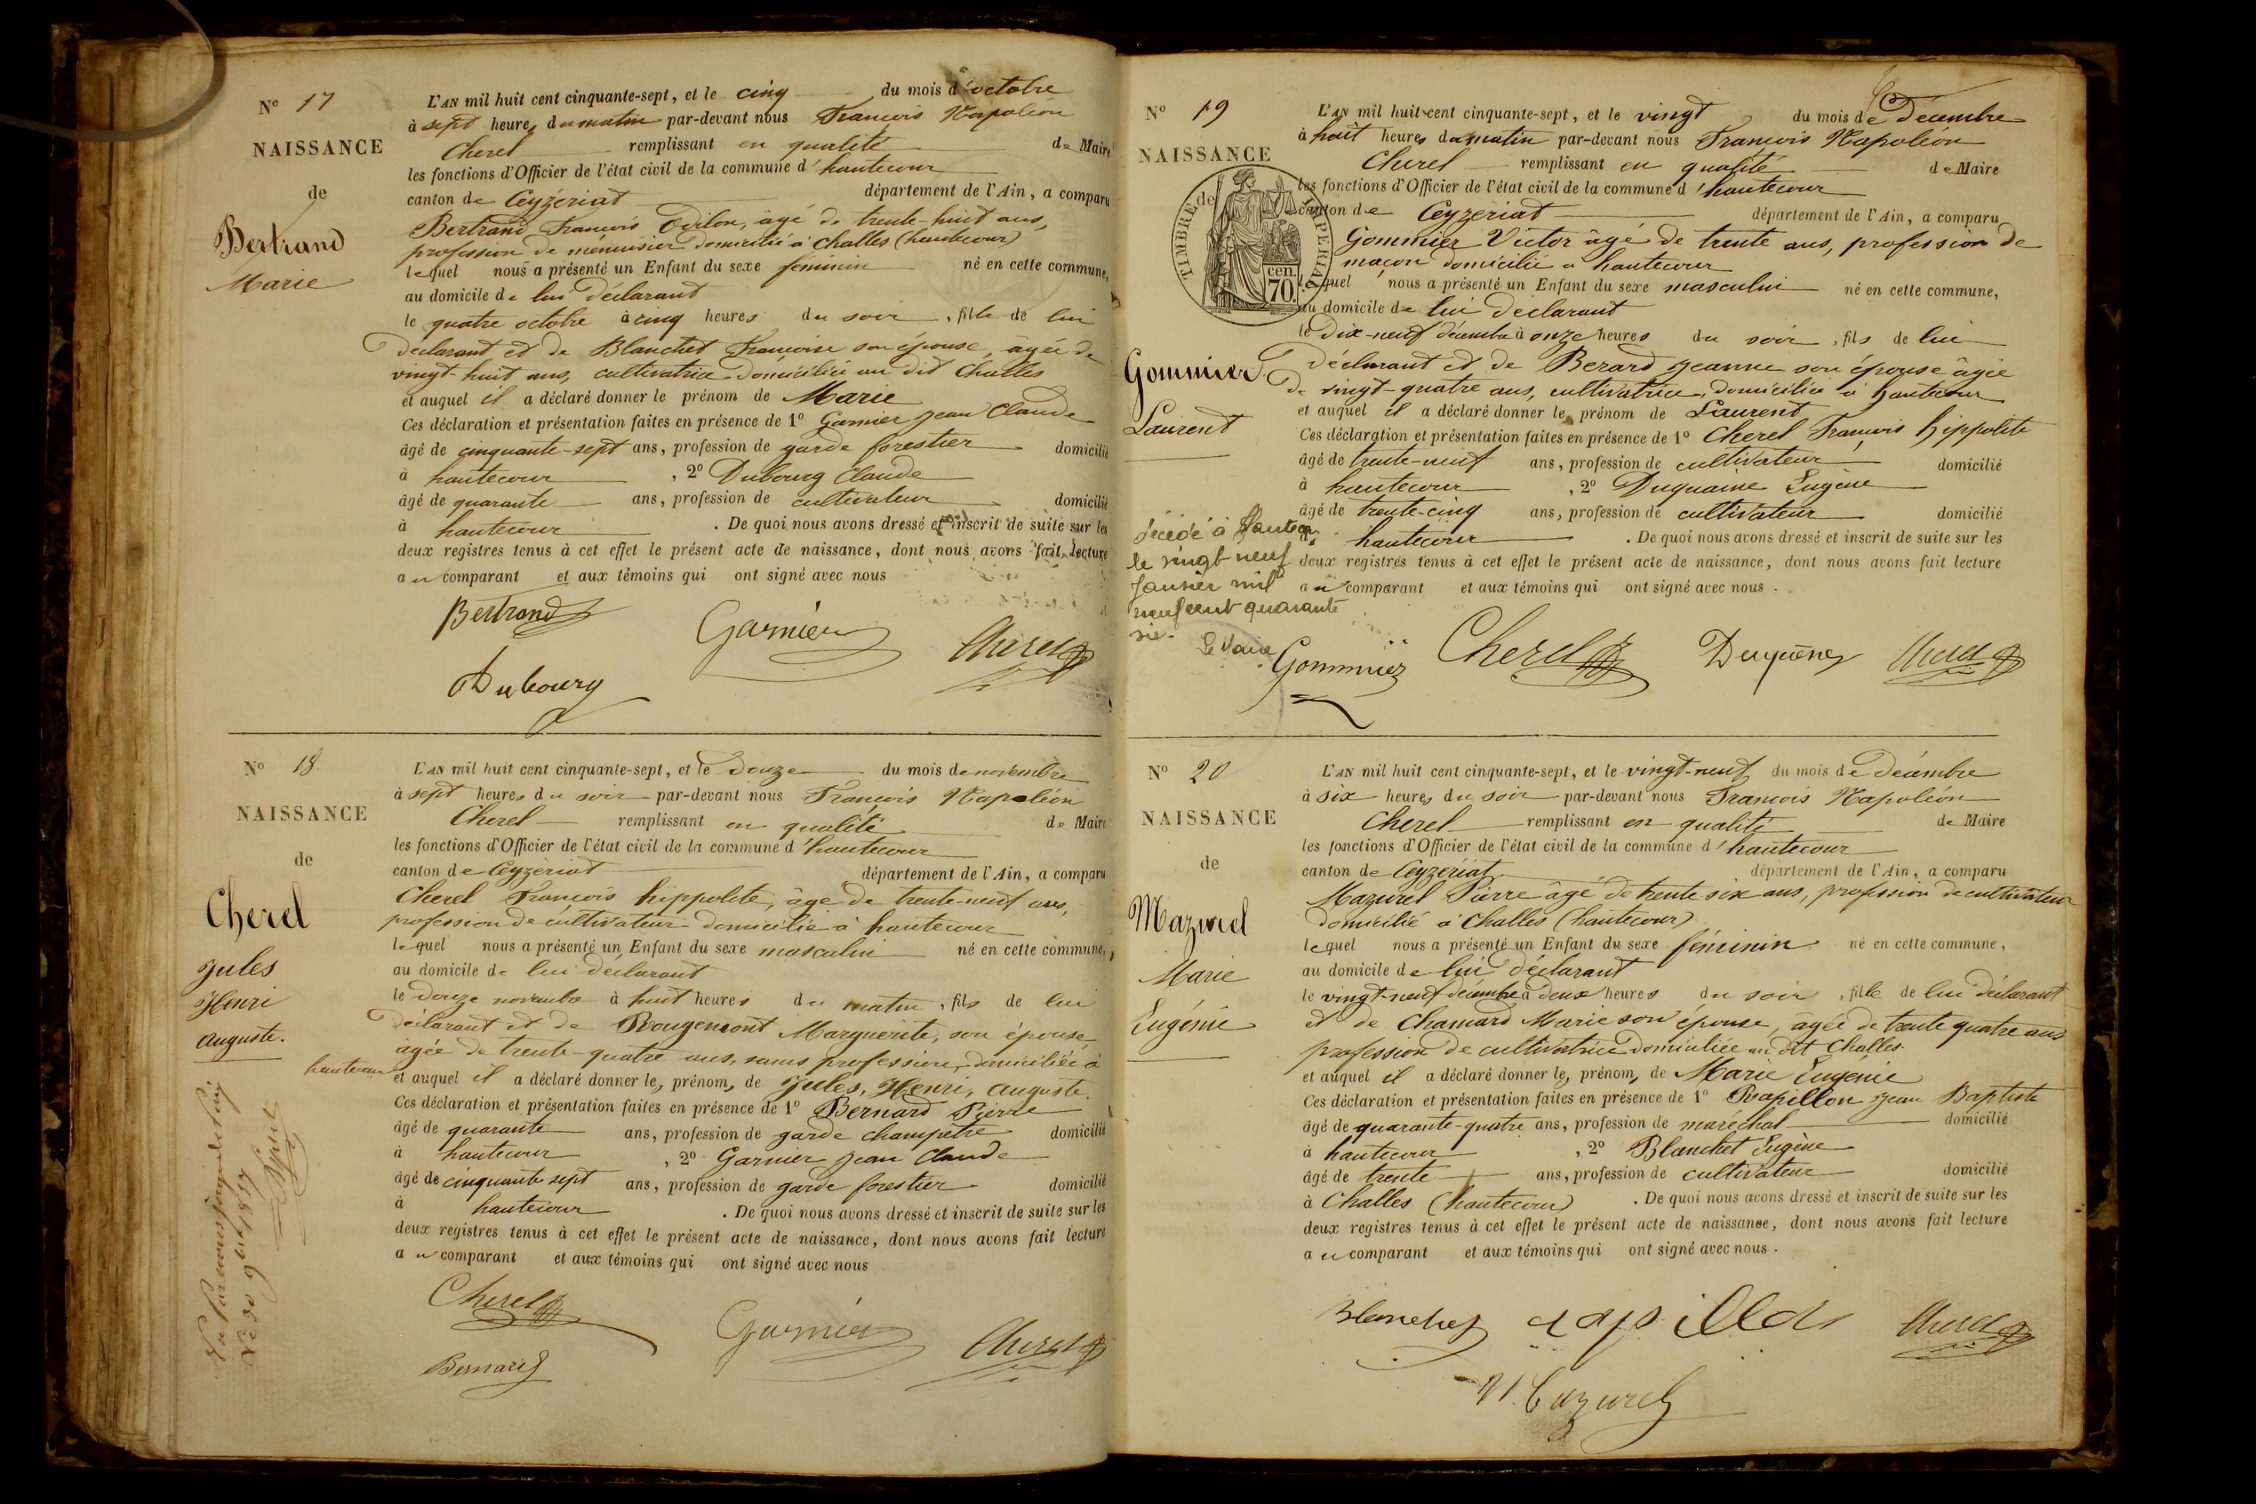 N° 17
NAISSANCE
de
Bertrand
Marie
L'AN mil huit cent cinquante-sept, et le cinq du mois d'octobre
à sept heures du matin par-devant nous François Napoléon
Cherel remplissant en qualité de Maire
les fonctions d'Officier de l'état civil de la commune d'hautecour
canton de Ceyzériat département de l'Ain, a comparu
Bertrand François Odilon, âgé de trente-huit ans,
profession de menuisier domicilié à Challes (hautecour)
lequel nous a présenté un Enfant du sexe féminin né en cette commune,
au domicile de lui déclarant
le quatre octobre à cinq heures du soir, fille de lui
déclarant et de Blanchet Françoise son épouse, âgée de
vingt-huit ans, cultivatrice domiciliée au dit Challes
et auquel il a déclaré donner le prénom de Marie
Ces déclaration et présentation faites en présence de 1° Garnier Jean Claude
âgé de cinquante-sept ans, profession de garde forestier domicilié
à hautecour, 2° Dubourg Claude
âgé de quarante ans, profession de cultivateur domicilié
à hautecour. De quoi nous avons dressé et inscrit de suite sur les
deux registres tenus à cet effet le présent acte de naissance, dont nous avons fait lecture
au comparant et aux témoins qui ont signé avec nous
Bertrand Garnier Cherel
Dubourg
N° 18
NAISSANCE
de
Cherel
Jules
Henri
Auguste.
L'AN mil huit cent cinquante-sept, et le douze du mois de novembre
à sept heures du soir par-devant nous François Napoléon
Cherel remplissant en qualité de Maire
les fonctions d'Officier de l'état civil de la commune d'hautecour
canton de Ceyzériat département de l'Ain, a comparu
Cherel François hippolite, âgé de trente-neuf ans,
profession de cultivateur domicilié à hautecour
lequel nous a présenté un Enfant du sexe masculin né en cette commune,
au domicile de lui déclarant
le douze novembre à huit heures du matin, fils de lui
déclarant et de Rougemont Marguerite, son épouse,
âgée de trente-quatre ans, sans profession, domiciliée à
hautecour
et auquel il a déclaré donner les prénoms de Jules, Henri, Auguste.
Ces déclaration et présentation faites en présence de 1° Bernard Pierre
âgé de quarante ans, profession de garde champêtre domicilié
à hautecour, 2° Garnier Jean Claude
âgé de cinquante sept ans, profession de garde forestier domicilié
à hautecour. De quoi nous avons dressé et inscrit de suite sur les
deux registres tenus à cet effet le présent acte de naissance, dont nous avons fait lecture
au comparant et aux témoins qui ont signé avec nous
Cherel Garnier Cherel
Bernard
N° 19
NAISSANCE
de
TIMBRE IMPERIAL
cen.
70.
Gommier
Laurent
décédé à Hautecour
le vingt neuf
Janvier mil
neuf cent quarante
six.
Le Maire
L'AN mil huit cent cinquante-sept, et le vingt du mois de Décembre
à huit heures du matin par-devant nous François Napoléon
Cherel remplissant en qualité de Maire
les fonctions d'Officier de l'état civil de la commune d'hautecour
canton de Ceyzériat département de l'Ain, a comparu
Gommier Victor âgé de trente ans, profession de
maçon domicilié à hautecour
lequel nous a présenté un Enfant du sexe masculin né en cette commune,
au domicile de lui déclarant
le Dix-neuf décembre à onze heures du soir, fils de lui
déclarant et de Berard Jeanne son épouse âgée
de vingt-quatre ans, cultivatrice, domiciliée à hautecour
et auquel il a déclaré donner le prénom de Laurent
Ces déclaration et présentation faites en présence de 1° Cherel François hippolite
âgé de trente-neuf ans, profession de cultivateur domicilié
à hautecour, 2° Duquaine Eugène
âgé de trente-cinq ans, profession de cultivateur domicilié
à hautecour. De quoi nous avons dressé et inscrit de suite sur les
deux registres tenus à cet effet le présent acte de naissance, dont nous avons fait lecture
au comparant et aux témoins qui ont signé avec nous.
Gommier Cherel Duquène Cherel
N° 20
NAISSANCE
de
Mazurel
Marie
Eugénie
L'AN mil huit cent cinquante-sept, et le vingt-neuf du mois de Décembre
à six heures du soir par-devant nous François Napoléon
Cherel remplissant en qualité de Maire
les fonctions d'Officier de l'état civil de la commune d'hautecour
canton de Ceyzériat département de l'Ain, a comparu
Mazurel Pierre âgé de trente six ans, profession de cultivateur
domicilié à Challes (hautecour)
lequel nous a présenté un Enfant du sexe féminin né en cette commune,
au domicile de lui déclarant
le vingt-neuf décembre à deux heures du soir, fille de lui déclarant
et de Chanard Marie son épouse, âgée de trente quatre ans
profession de cultivatrice domiciliée au dit Challes.
et auquel il a déclaré donner les prénoms de Marie Eugénie
Ces déclaration et présentation faites en présence de 1° Papillon Jean Baptiste
âgé de quarante-quatre ans, profession de maréchal domicilié
à hautecour, 2° Blanchet Eugène
âgé de trente ans, profession de cultivateur domicilié
à Challes (hautecour). De quoi nous avons dressé et inscrit de suite sur les
deux registres tenus à cet effet le présent acte de naissance, dont nous avons fait lecture
au comparant et aux témoins qui ont signé avec nous.
Blanchet Cherel
Mazurel